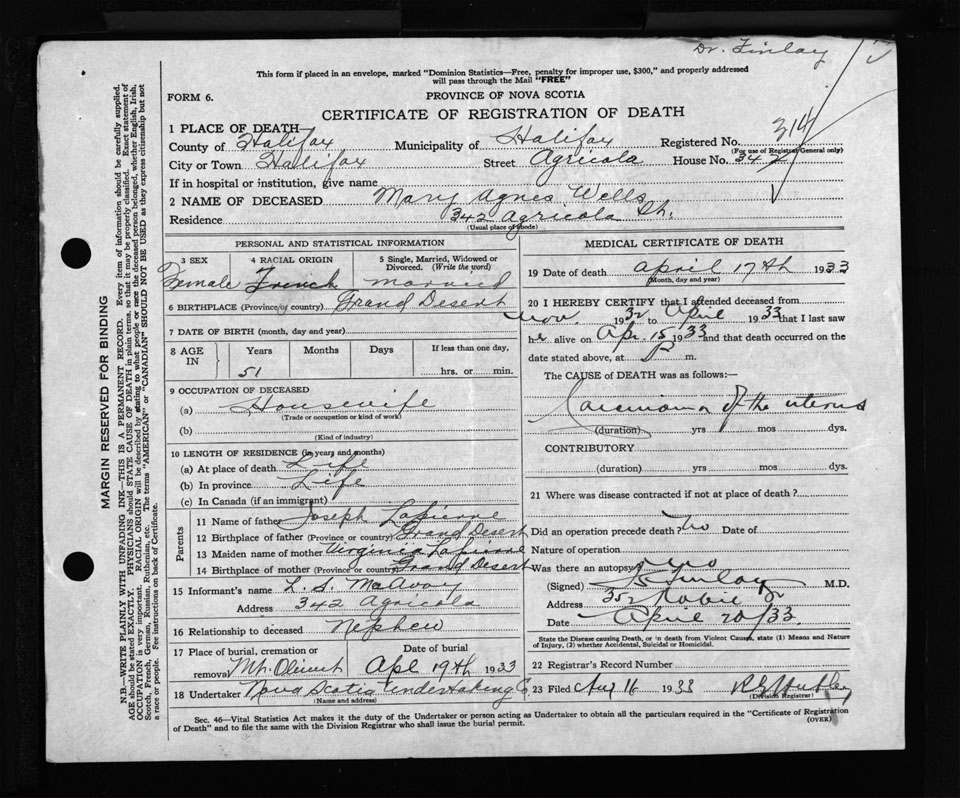 Dr. Finlay
This form if placed in an envelope, marked "Dominion Statistics—Free, penalty for improper use, $300," and properly addressed
will pass through the Mail "FREE"
FORM 6.
PROVINCE OF NOVA SCOTIA
CERTIFICATE OF REGISTRATION OF DEATH
1 PLACE OF DEATH—
County of Halifax Municipality of Halifax Registered No. 314
(For use of Registrar General only)
City or Town Halifax Street Agricola House No. 342
If in hospital or institution, give name
2 NAME OF DECEASED Mary Agnes Wells
Residence 342 Agricola St.
(Usual place of abode)
PERSONAL AND STATISTICAL INFORMATION
3 SEX 4 RACIAL ORIGIN 5 Single, Married, Widowed or
Divorced. (Write the word)
Female French married
6 BIRTHPLACE (Province or country) Grand Desert
7 DATE OF BIRTH (month, day and year)
8 AGE IN Years Months Days If less than one day,
51 hrs. or min.
9 OCCUPATION OF DECEASED
(a) Housewife
(Trade or occupation or kind of work)
(b)
(Kind of industry)
10 LENGTH OF RESIDENCE (in years and months)
(a) At place of death Life
(b) In province Life
(c) In Canada (if an immigrant)
Parents
11 Name of father Joseph Lapierre
12 Birthplace of father (Province or country) Grand Desert
13 Maiden name of mother Virginia Lapierre
14 Birthplace of mother (Province or country) Grand Desert
15 Informant's name L. S. McAvoy
Address 342 Agricola
16 Relationship to deceased Nephew
17 Place of burial, cremation or Date of burial
removal Mt. Olivet Apl 19th 1933
18 Undertaker Nova Scotia Undertaking Co
(Name and address)
MEDICAL CERTIFICATE OF DEATH
19 Date of death April 17th 1933
(Month, day and year)
20 I HEREBY CERTIFY that I attended deceased from
Nov. 1932 to April 1933 that I last saw
her alive on Apr. 15 1933 and that death occurred on the
date stated above, at P m.
The CAUSE of DEATH was as follows:—
Carcinoma of the uterus
(duration) yrs mos dys.
CONTRIBUTORY
(duration) yrs. mos. dys.
21 Where was disease contracted if not at place of death?
Did an operation precede death? no Date of
Nature of operation
Was there an autopsy? no
(Signed) Finlay M.D.
Address 352 Robie
Date April 20/33.
State the Disease causing Death, or in death from Violent Causes, state (1) Means and Nature
of Injury, (2) whether Accidental, Suicidal or Homicidal.
22 Registrar's Record Number
23 Filed Aug 16 1933
(Division Registrar)
Sec. 46—Vital Statistics Act makes it the duty of the Undertaker or person acting as Undertaker to obtain all the particulars required in the "Certificate of Registration
of Death" and to file the same with the Division Registrar who shall issue the burial permit.
(OVER)
MARGIN RESERVED FOR BINDING
N.B.—WRITE PLAINLY WITH UNFADING INK—THIS IS A PERMANENT RECORD. Every item of information should be carefully supplied.
AGE should be stated EXACTLY. PHYSICIANS should STATE CAUSE OF DEATH in plain terms, so that it may be properly classified. Exact statement of
OCCUPATION is very important. RACIAL ORIGIN will be described by stating to what people or race the deceased person belonged, whether English, Irish,
Scotch, French, German, Russian, Ruthenian, etc. The terms "AMERICAN" or "CANADIAN" SHOULD NOT BE USED as they express citizenship but not
a race or people. Fee instructions on back of Certificate.